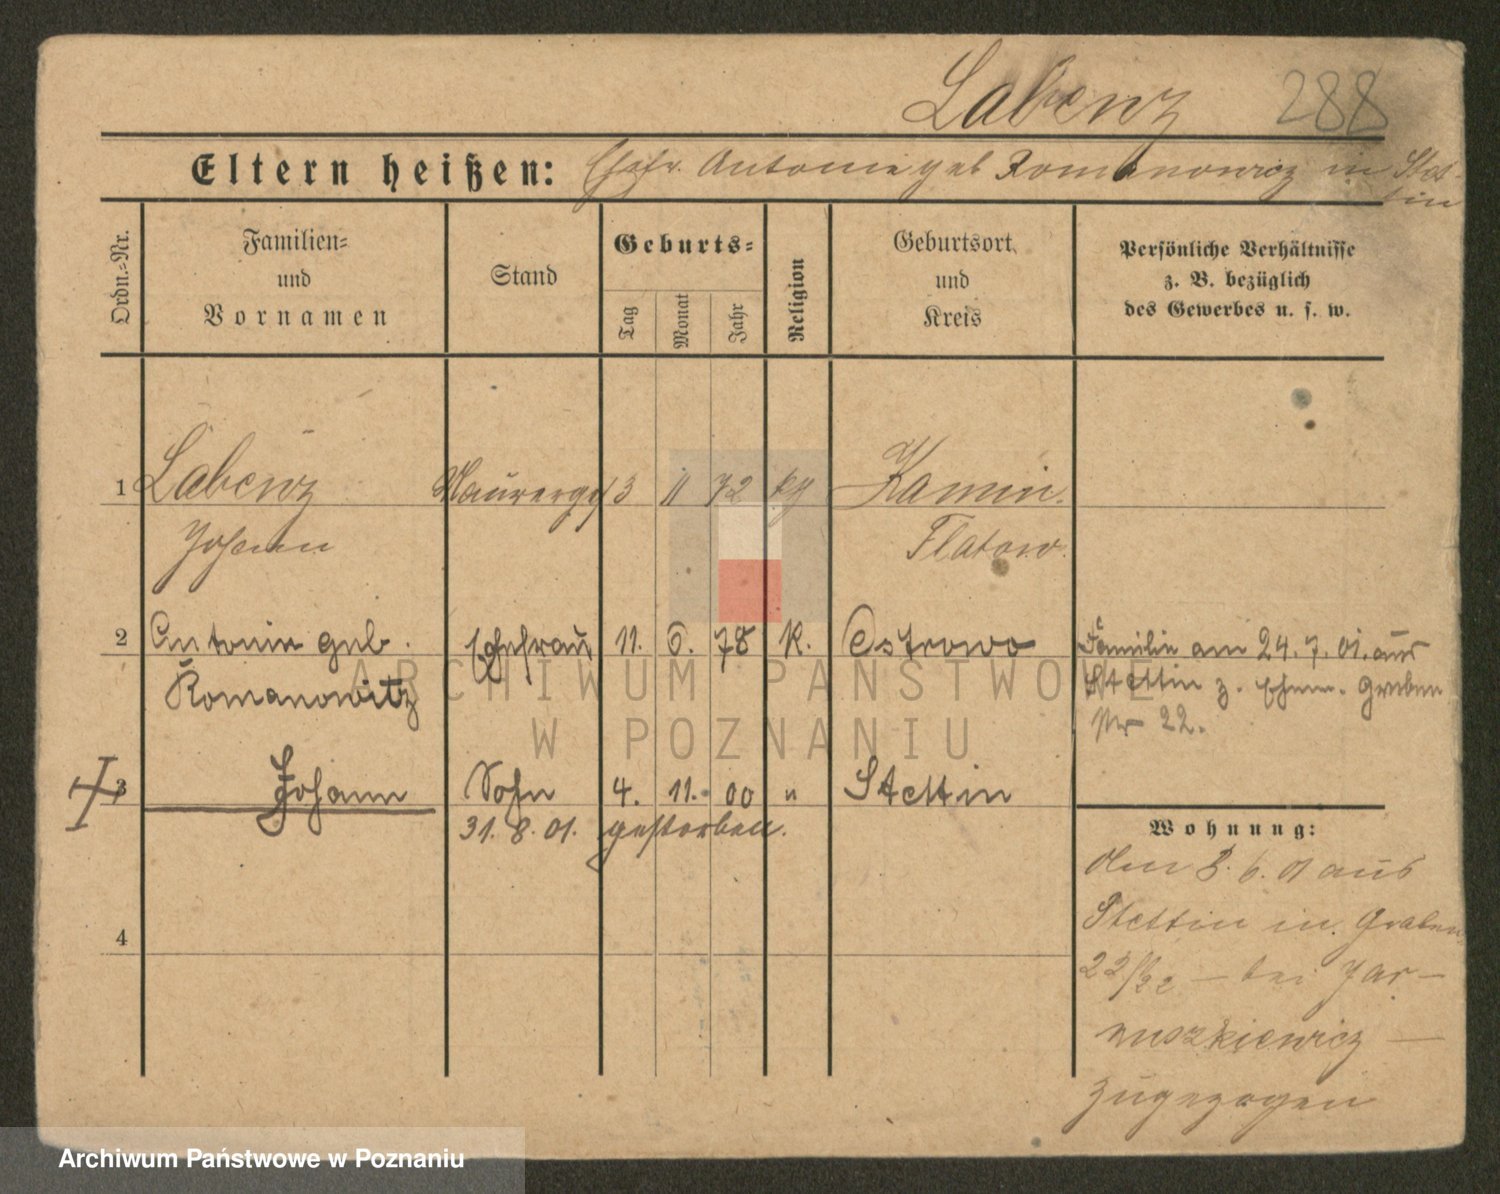 Labenz 288
Eltern heißen: Ehefr. Antonie geb Romanowicz in Stet-
tin
Ordn.=Nr.
Familien=
und
Vornamen
Stand
Geburts=
Tag
Monat
Jahr
Religion
Geburtsort
und
Kreis
Persönliche Verhältnisse
z. B. bezüglich
des Gewerbes u. s. w.
1 Labenz Maurerges 3 11 72 kth Kamin.
Johann Flatow.
2 Antonie geb. Ehefrau 11. 6. 78 K. Ostrowo Familie am 24.7.01. aus
Romanowitz Stettin z. Ehem. Graben
Nr 22.
3 Johann Sohn 4. 11. 00 " Stettin
31. 8. 01. gestorben.
Wohnung:
den 8. 6. 01 aus
Stettin in Graben
22/22 – bei Jar–
ruszkiewicz –
zugezogen
4
ARCHIWUM PAŃSTWOWE
W POZNANIU
Archiwum Państwowe w Poznaniu